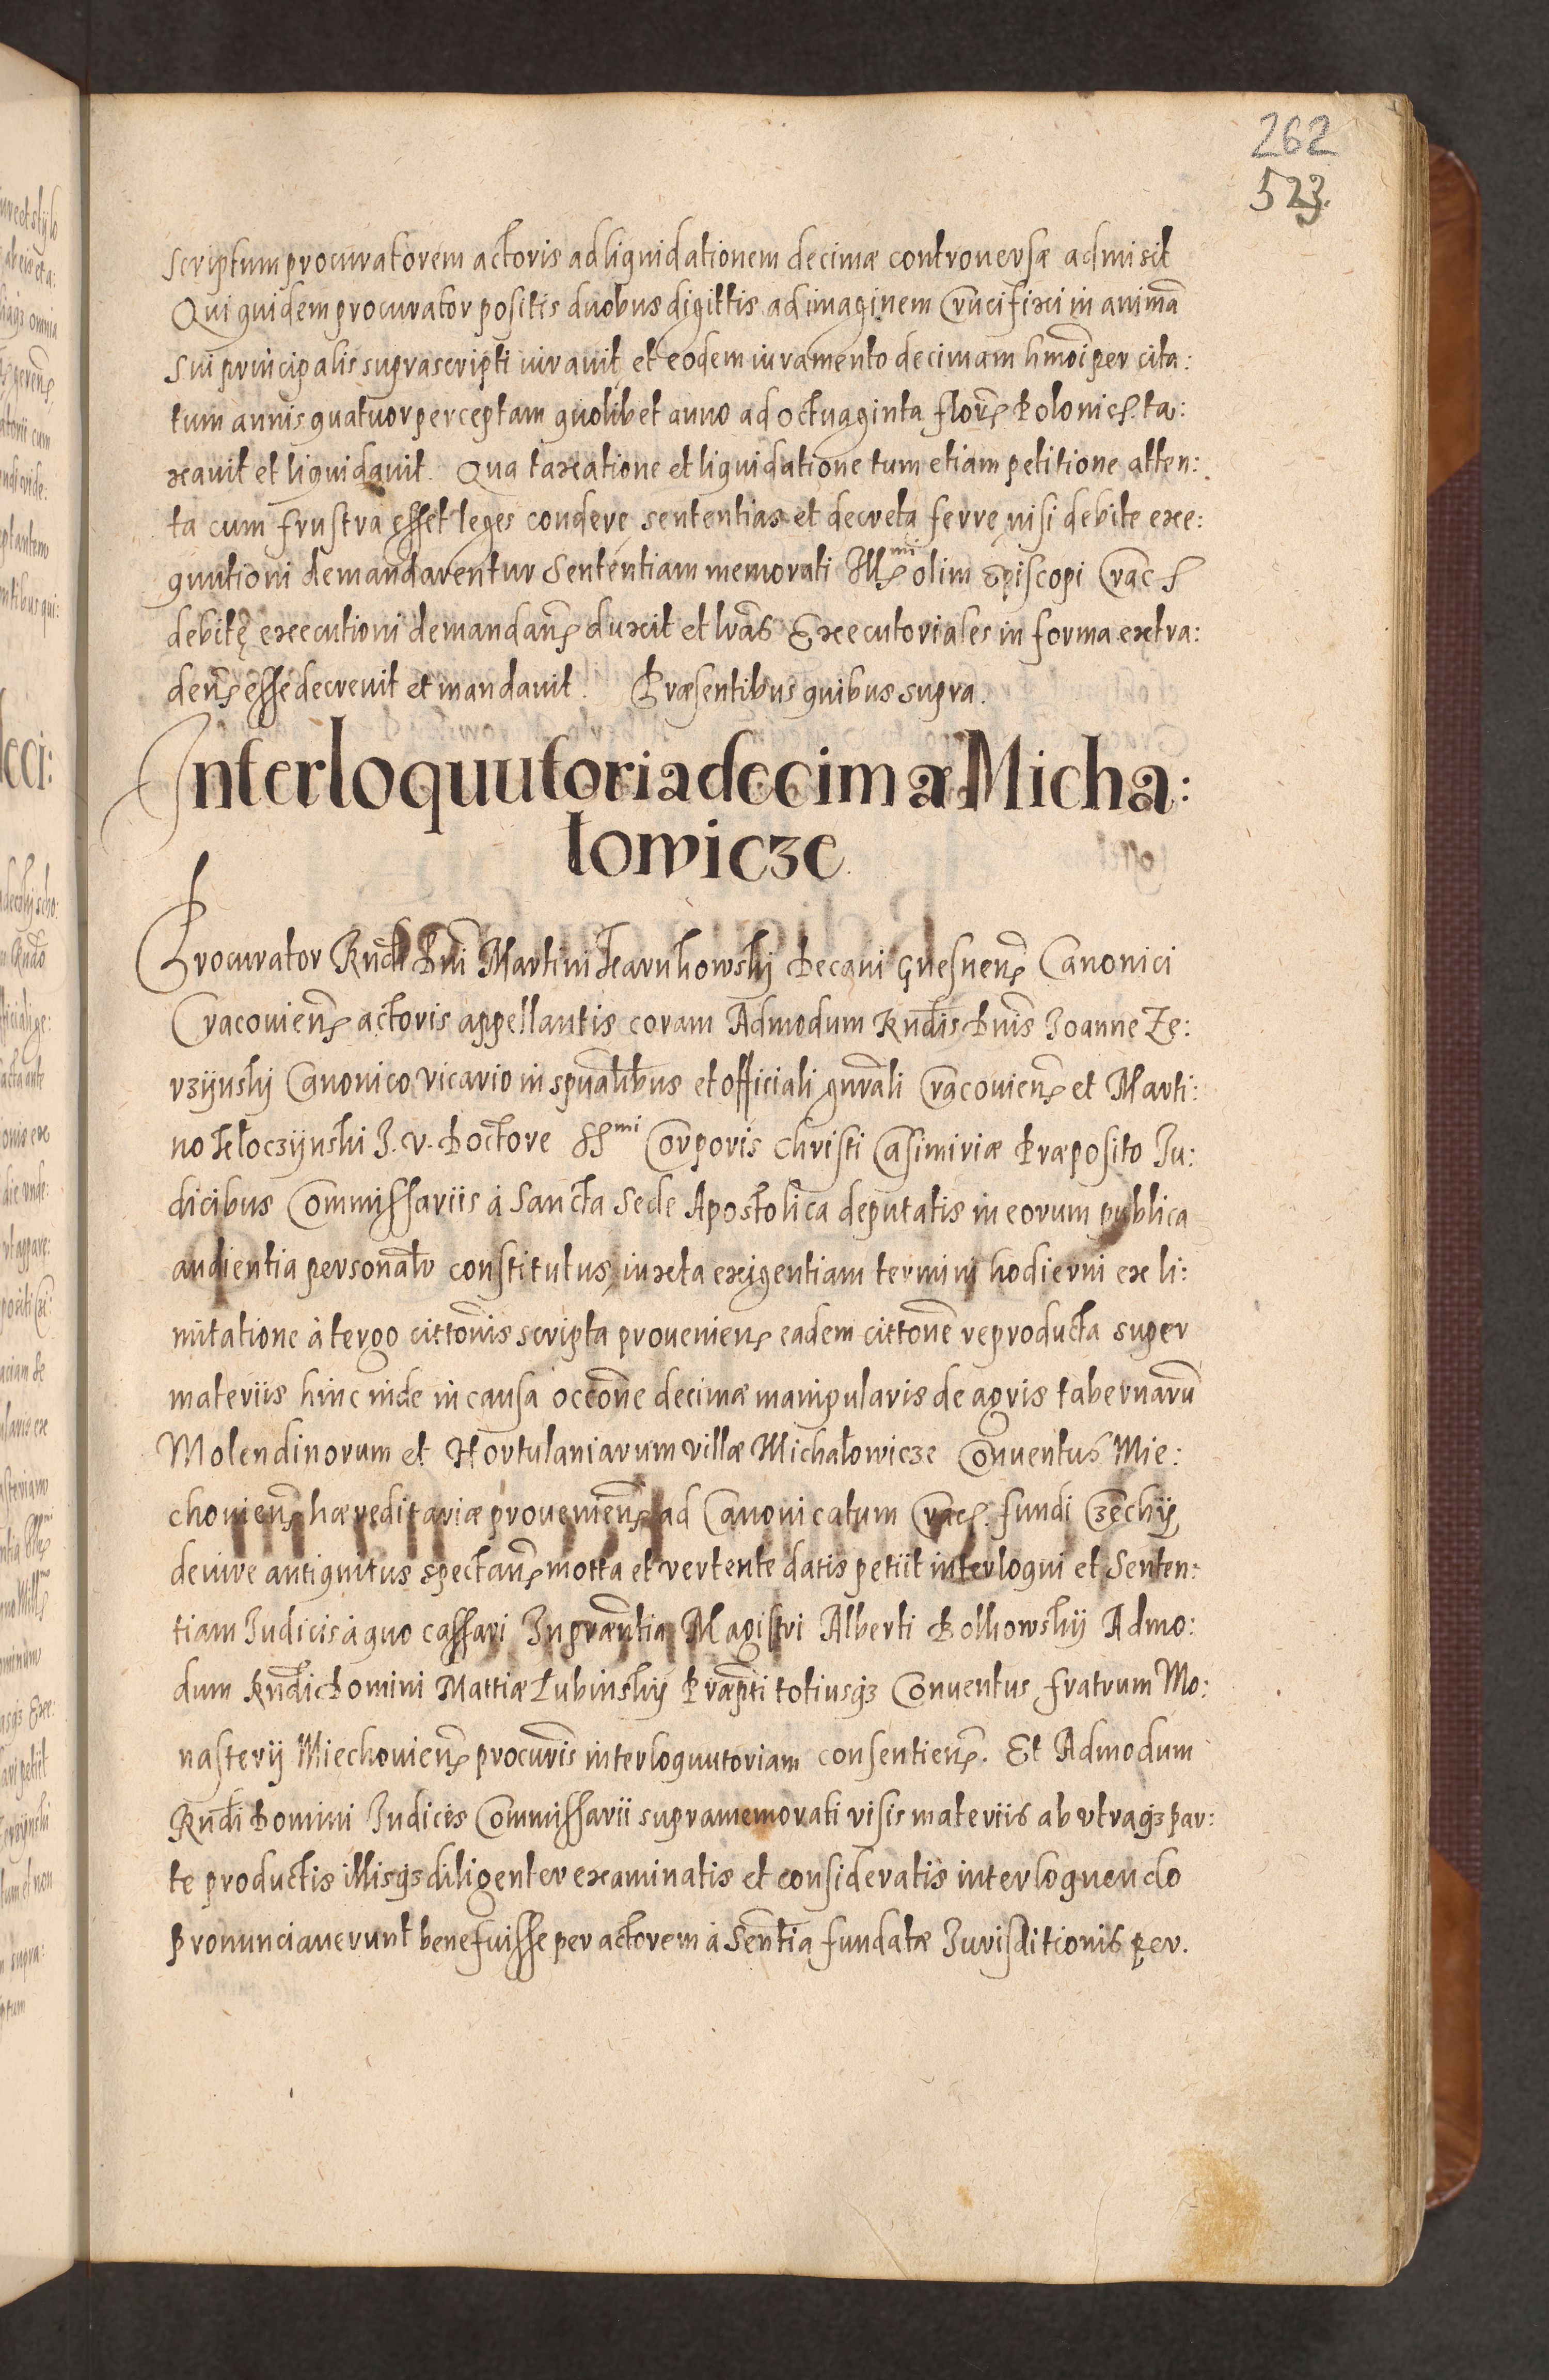 262
523.
scriptum procuratorem actoris ad liquidationem decimæ controuersæ admisit
Qui quidem procurator positis duobus digittis ad imaginem Crucifixi in animã
Sui principalis suprascripti iurauit et eodem iuramento decimam hmõi per cita:
tum annis quatuor perceptam quolibet anno ad octuaginta florẽ Polonic. ta:
xauit et liquidauit. Qua taxatione et liquidatione tum etiam petitione atten:
ta cum frustra esset leges condere sententias et decreta ferre nisi debite exe:
quutioni demandarentur Sententiam memorati Ill^mi olim Episcopi Crac
debitę executioni demandanẽ duxit et lrãs Executoriales in forma extra:
denẽ esse decreuit et mandauit. Præsentibus quibus supra.
Interloquutoria decimæ Micha:
łowicze
Procurator Rndi Dni Martini Karnkowskÿ Decani Gnesnenẽ Canonici
Cracouienẽ actoris appellantis coram Admodum Rndis Dnis Joanne Ze:
rzÿnskÿ Canonico Vicario in spũalibus et officiali gnrãli Cracouienẽ et Marti:
no Kłoczÿnski J. V. Doctore SS^mi Corporis Christi Casimiriæ Præposito Ju:
dicibus Commissariis à Sancta Sede Apostolica deputatis in eorum publica
audientia personalr constitutus iuxta exigentiam termini hodierni ex li:
mitatione à tergo cittõnis scripta proueniens eadem cittõne reproducta super
materiis hinc inde in causa occõne decimæ manipularis de agris tabernarũ
Molendinorum et Hortulaniarum villæ Michałowicze Conuentus Mie:
chouienẽ hæreditariæ prouenienẽ ad Canonicatum Crac. fundi Czechÿ
de iure antiquitus spectanẽ motta et vertente datis petiit interloqui et Senten:
tiam Judicis à quo cassari In præntia Magistri Alberti Bolkowskÿ Admo:
dum Rndi Domini Mattiæ Lubinskÿ Præpti totiusqз Conuentus fratrum Mo:
nasterÿ Miechouienẽ procuris interloquutoriam consentienẽ. Et Admodum
Rndi Domini Judices Commissarii supramemorati visis materiis ab vtraqз par:
te productis illisqз diligenter examinatis et consideratis interloquendo
pronunciauerunt bene fuisse per actorem à Sentia fundatæ Jurisditionis per.